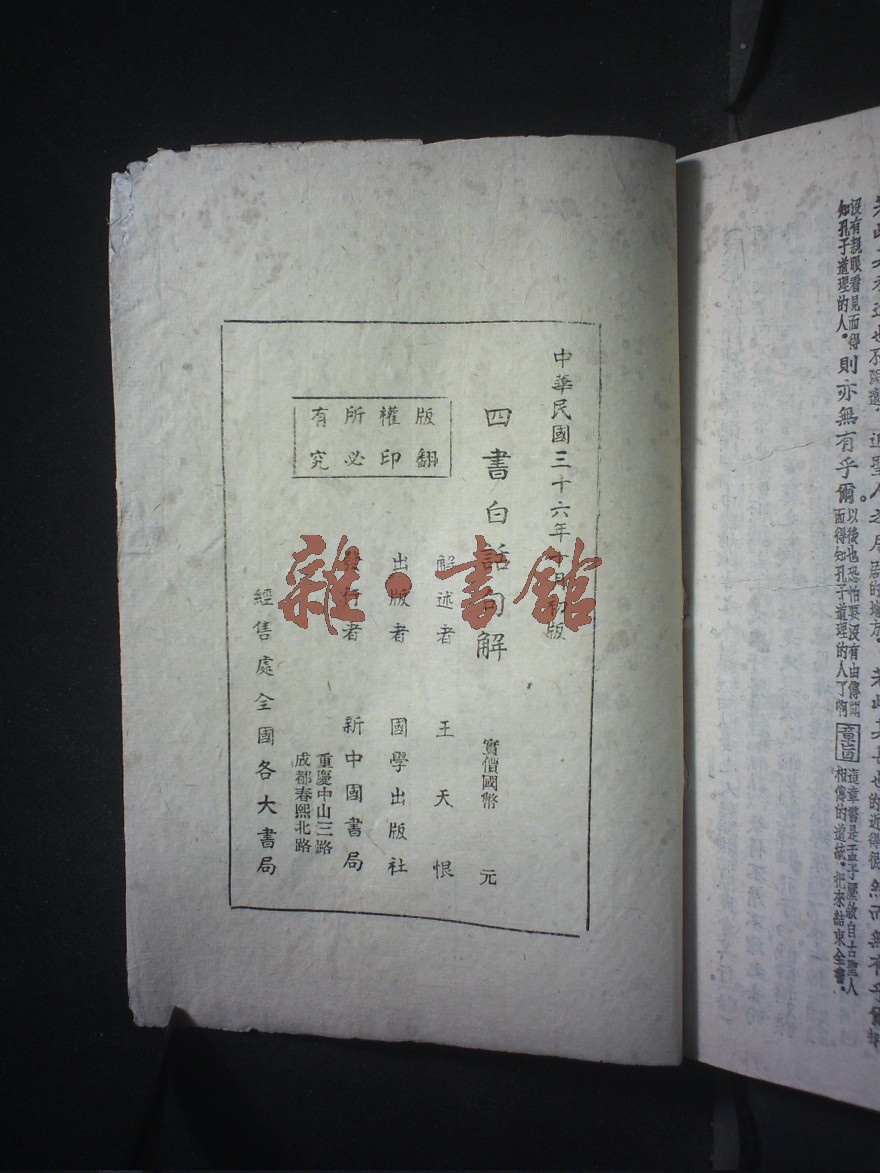 近聖人之居
若此其甚也
然而無有乎爾
沒有親眼看見而得
知孔子道理的人。
則亦無有乎爾。
以後也恐怕要沒有由傳聞
而得知孔子道理的人了啊
章旨
這章書是孟子歷敘自古聖人
相傳的道統。把來結束全書。
中華民國三十六年 月初版
四書白話句解
實價國幣 元
解述者 王天恨
出版者 國學出版社
發行者 新中國書局
重慶中山三路
成都春熙北路
經售處全國各大書局
版權所有
翻印必究
雜·書館